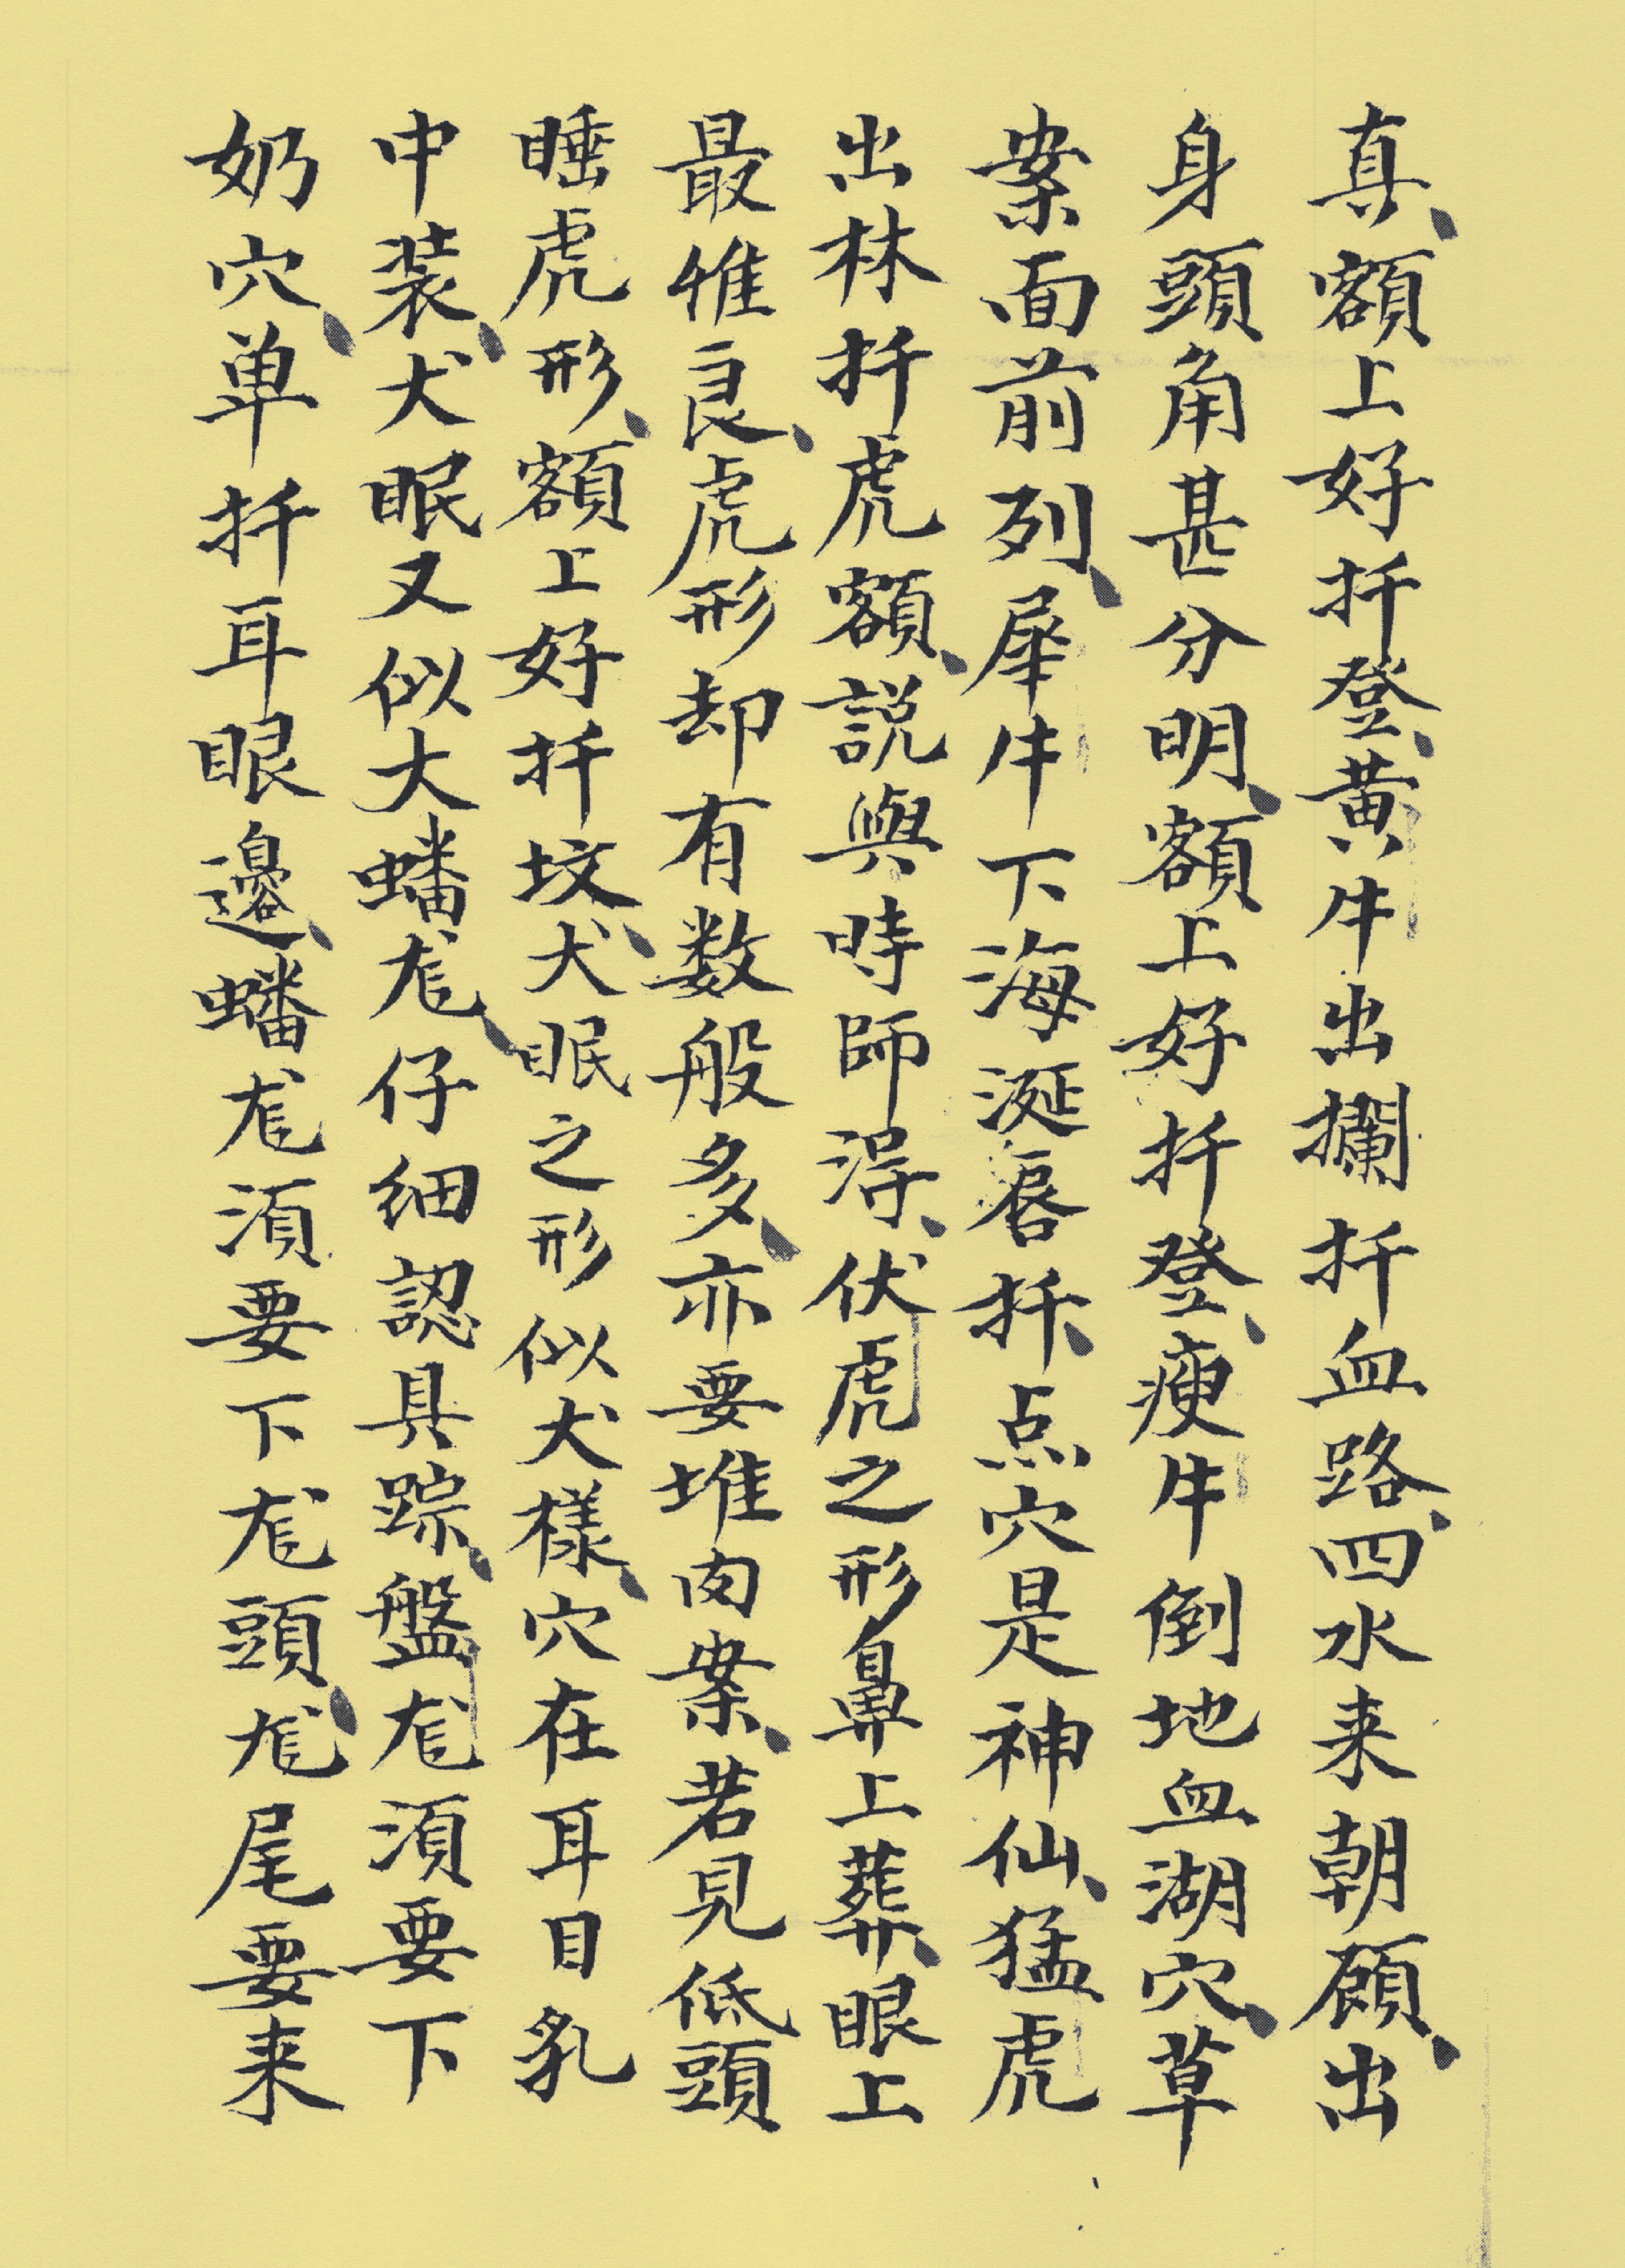 真、額上好扦登、黄牛出攔扦血路、四水来朝顧、出
身頭角甚分明、額上好扦登、瘦牛倒地血湖穴、草
案面前列、犀牛下海涎唇扦、点穴是神仙、猛虎
出林扦虎額、説與時師得、伏虎之形鼻上葬、眼上
最惟良、虎形却有数般多、亦要堆肉案、若見低頭
睡虎形、額上好扦坟、犬眠之形似犬樣、穴在耳目乳
中装、犬眠又似大蟠尨、仔细認具踪、盤尨須要下
奶穴、单扦耳眼邊、蟠尨須要下尨頭、尨尾要来